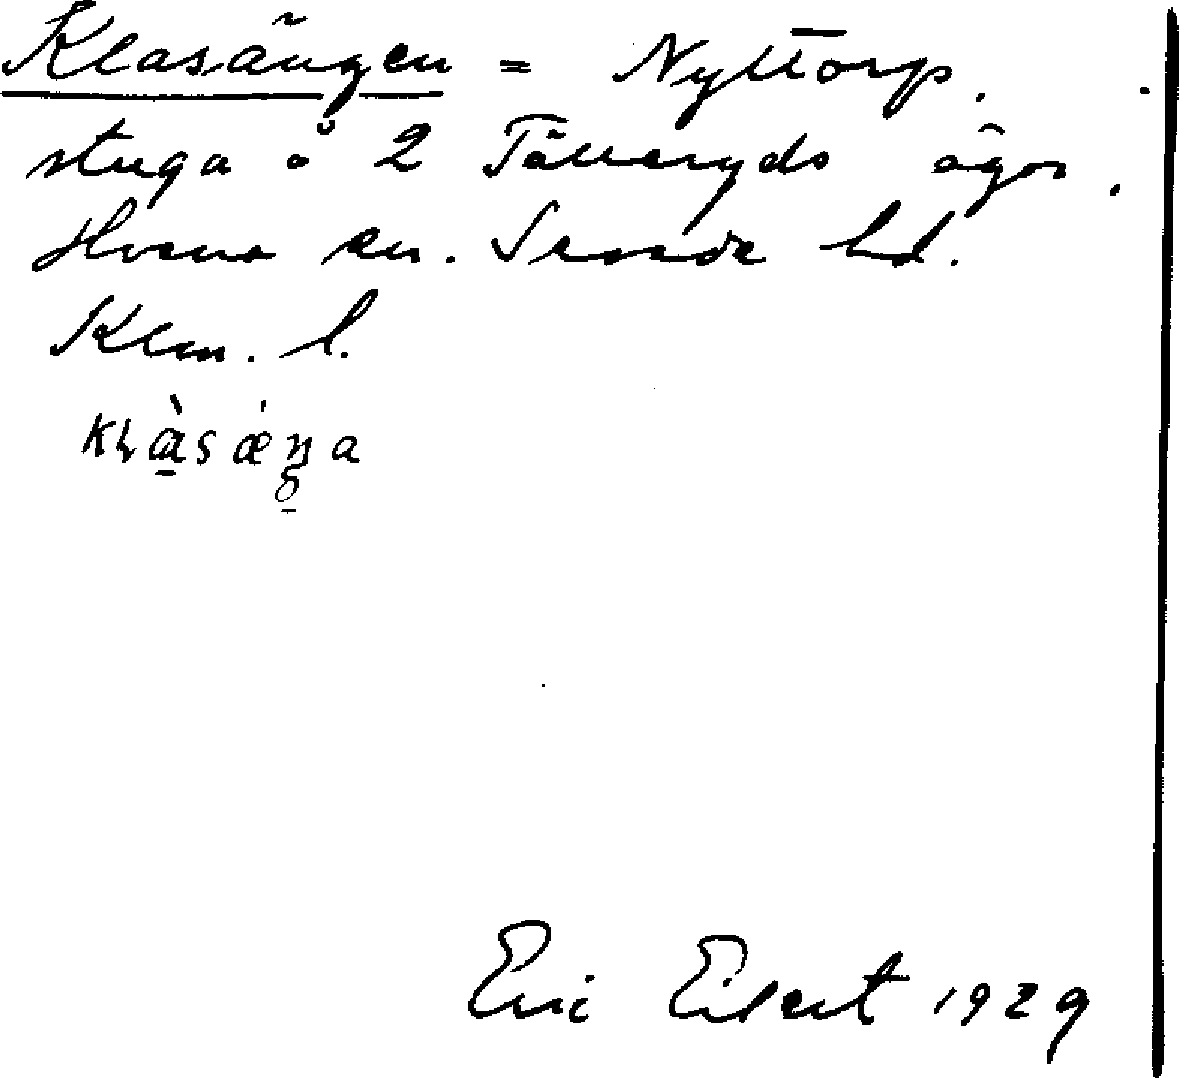 Klasängen = Nyttorp.
stuga å 2 Tälleryds ägor.
Hvena sn. Sevede hd.
Klm. l.
Eric Eilert 1929